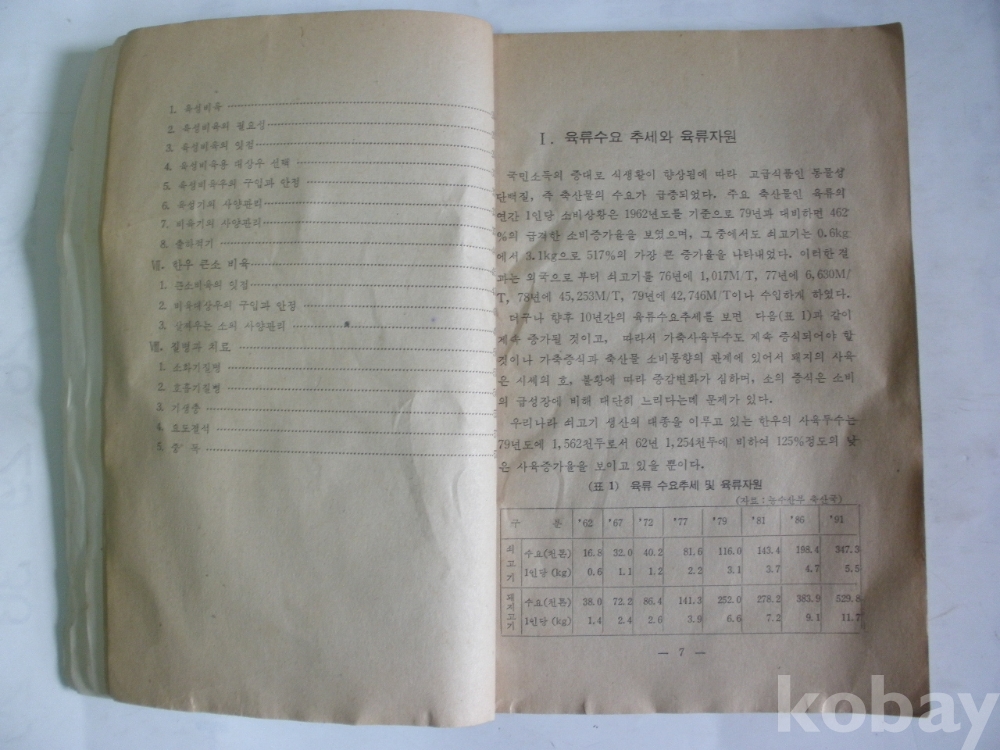 1. 육성비육
2. 육성비육의 필요성
3. 육성비육의 잇점
4. 육성비육용 대상우 선택
5. 육성비육우의 구입과 안정
6. 육성기의 사양관리
7. 비육기의 사양관리
8. 출하적기
Ⅶ. 한우 큰소 비육
1. 큰소비육의 잇점
2. 비육대상우의 구입과 안정
3. 살찌우는 소의 사양관리
Ⅷ. 질병과 치료
1. 소화기질병
2. 호흡기질병
3. 기생충
4. 요도결석
5. 중 독
Ⅰ. 육류수요 추세와 육류자원
국민소득의 증대로 식생활이 향상됨에 따라 고급식품인 동물성
단백질, 즉 축산물의 수요가 급증되었다. 주요 축산물인 육류의
연간 1인당 소비상황은 1962년도를 기준으로 79년과 대비하면 462
%의 급격한 소비증가율을 보였으며, 그 중에서도 쇠고기는 0.6kg
에서 3.1kg으로 517%의 가장 큰 증가율을 나타내었다. 이러한 결
과는 외국으로 부터 쇠고기를 76년에 1,017M/T, 77년에 6,630M/
T, 78년에 45,253M/T, 79년에 42,746M/T이나 수입하게 하였다.
더구나 향후 10년간의 육류수요추세를 보면 다음(표 1)과 같이
계속 증가될 것이고, 따라서 가축사육두수도 계속 증식되어야 할
것이나 가축증식과 축산물 소비동향의 관계에 있어서 돼지의 사육
은 시세의 호, 불황에 따라 증감변화가 심하며, 소의 증식은 소비
의 급성장에 비해 대단히 느리다는데 문제가 있다.
우리나라 쇠고기 생산의 대종을 이루고 있는 한우의 사육두수는
79년도에 1,562천두로서 62년 1,254천두에 비하여 125%정도의 낮
은 사육증가율을 보이고 있을 뿐이다.
(표 1) 육류 수요추세 및 육류자원
(자료 : 농수산부 축산국)
구 분 '62 '67 '72 '77 '79 '81 '86 '91
쇠고기 수요(천톤) 16.8 32.0 40.2 81.6 116.0 143.4 198.4 347.3
1인당 (kg) 0.6 1.1 1.2 2.2 3.1 3.7 4.7 5.5
돼지고기 수요(천톤) 38.0 72.2 86.4 141.3 252.0 278.2 383.9 529.8
1인당 (kg) 1.4 2.4 2.6 3.9 6.6 7.2 9.1 11.7
— 7 —
kobay